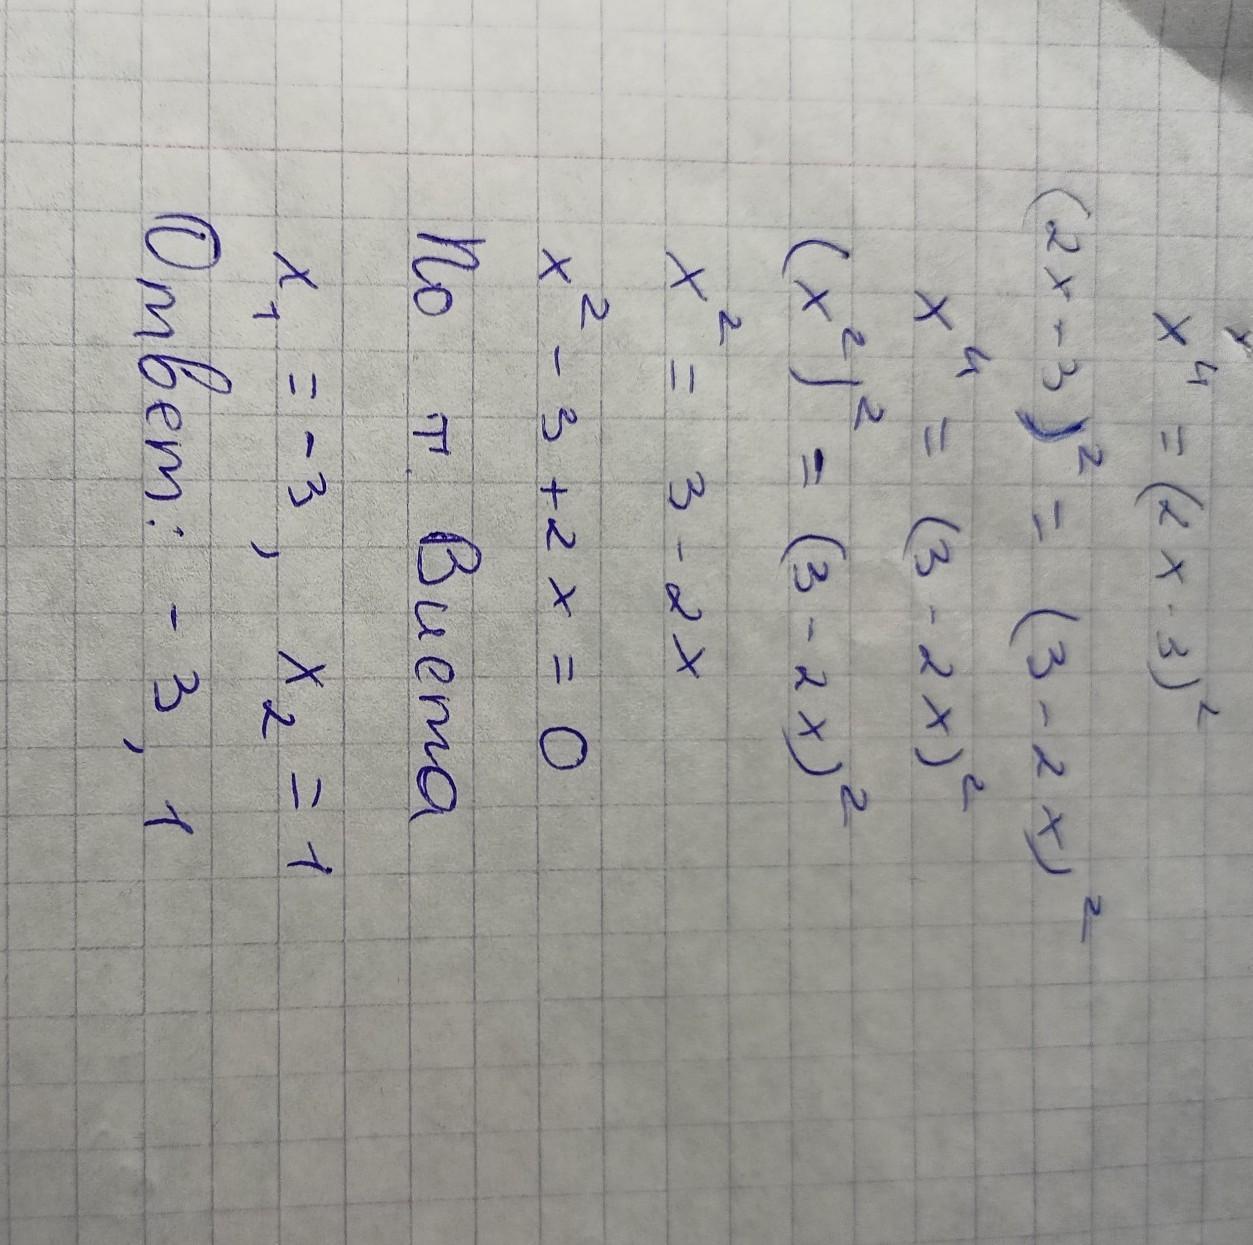 x⁴ = (2x - 3)²
(2x - 3)² = (3 - 2x)²
x⁴ = (3 - 2x)²
(x²)² = (3 - 2x)²
x² = 3 - 2x
x² - 3 + 2x = 0
По т. Виета
x₁ = -3, x₂ = 1
Ответ: -3, 1